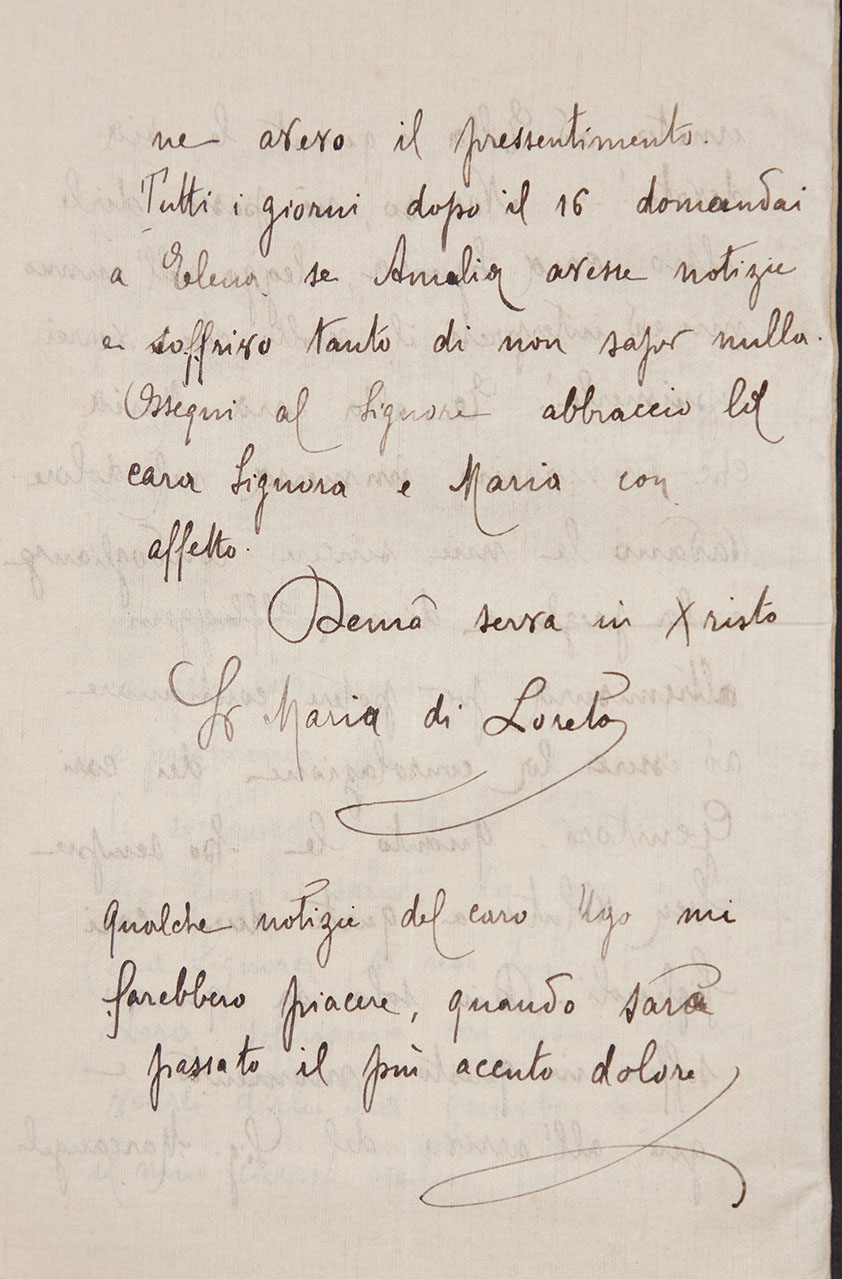 ne avevo il pressentimento.
Tutti i giorni dopo il 16 domandai
a Elena se Amalia avesse notizie
e soffrivo tanto di non saper nulla.
Ossequi al Signore abbraccio la
cara Signora e Maria con
affetto.
Dema serva in Xristo
Sr Maria di Loreto
Qualche notizie del caro Ugo mi
farebbero piacere, quando sarà
passato il più acento dolore